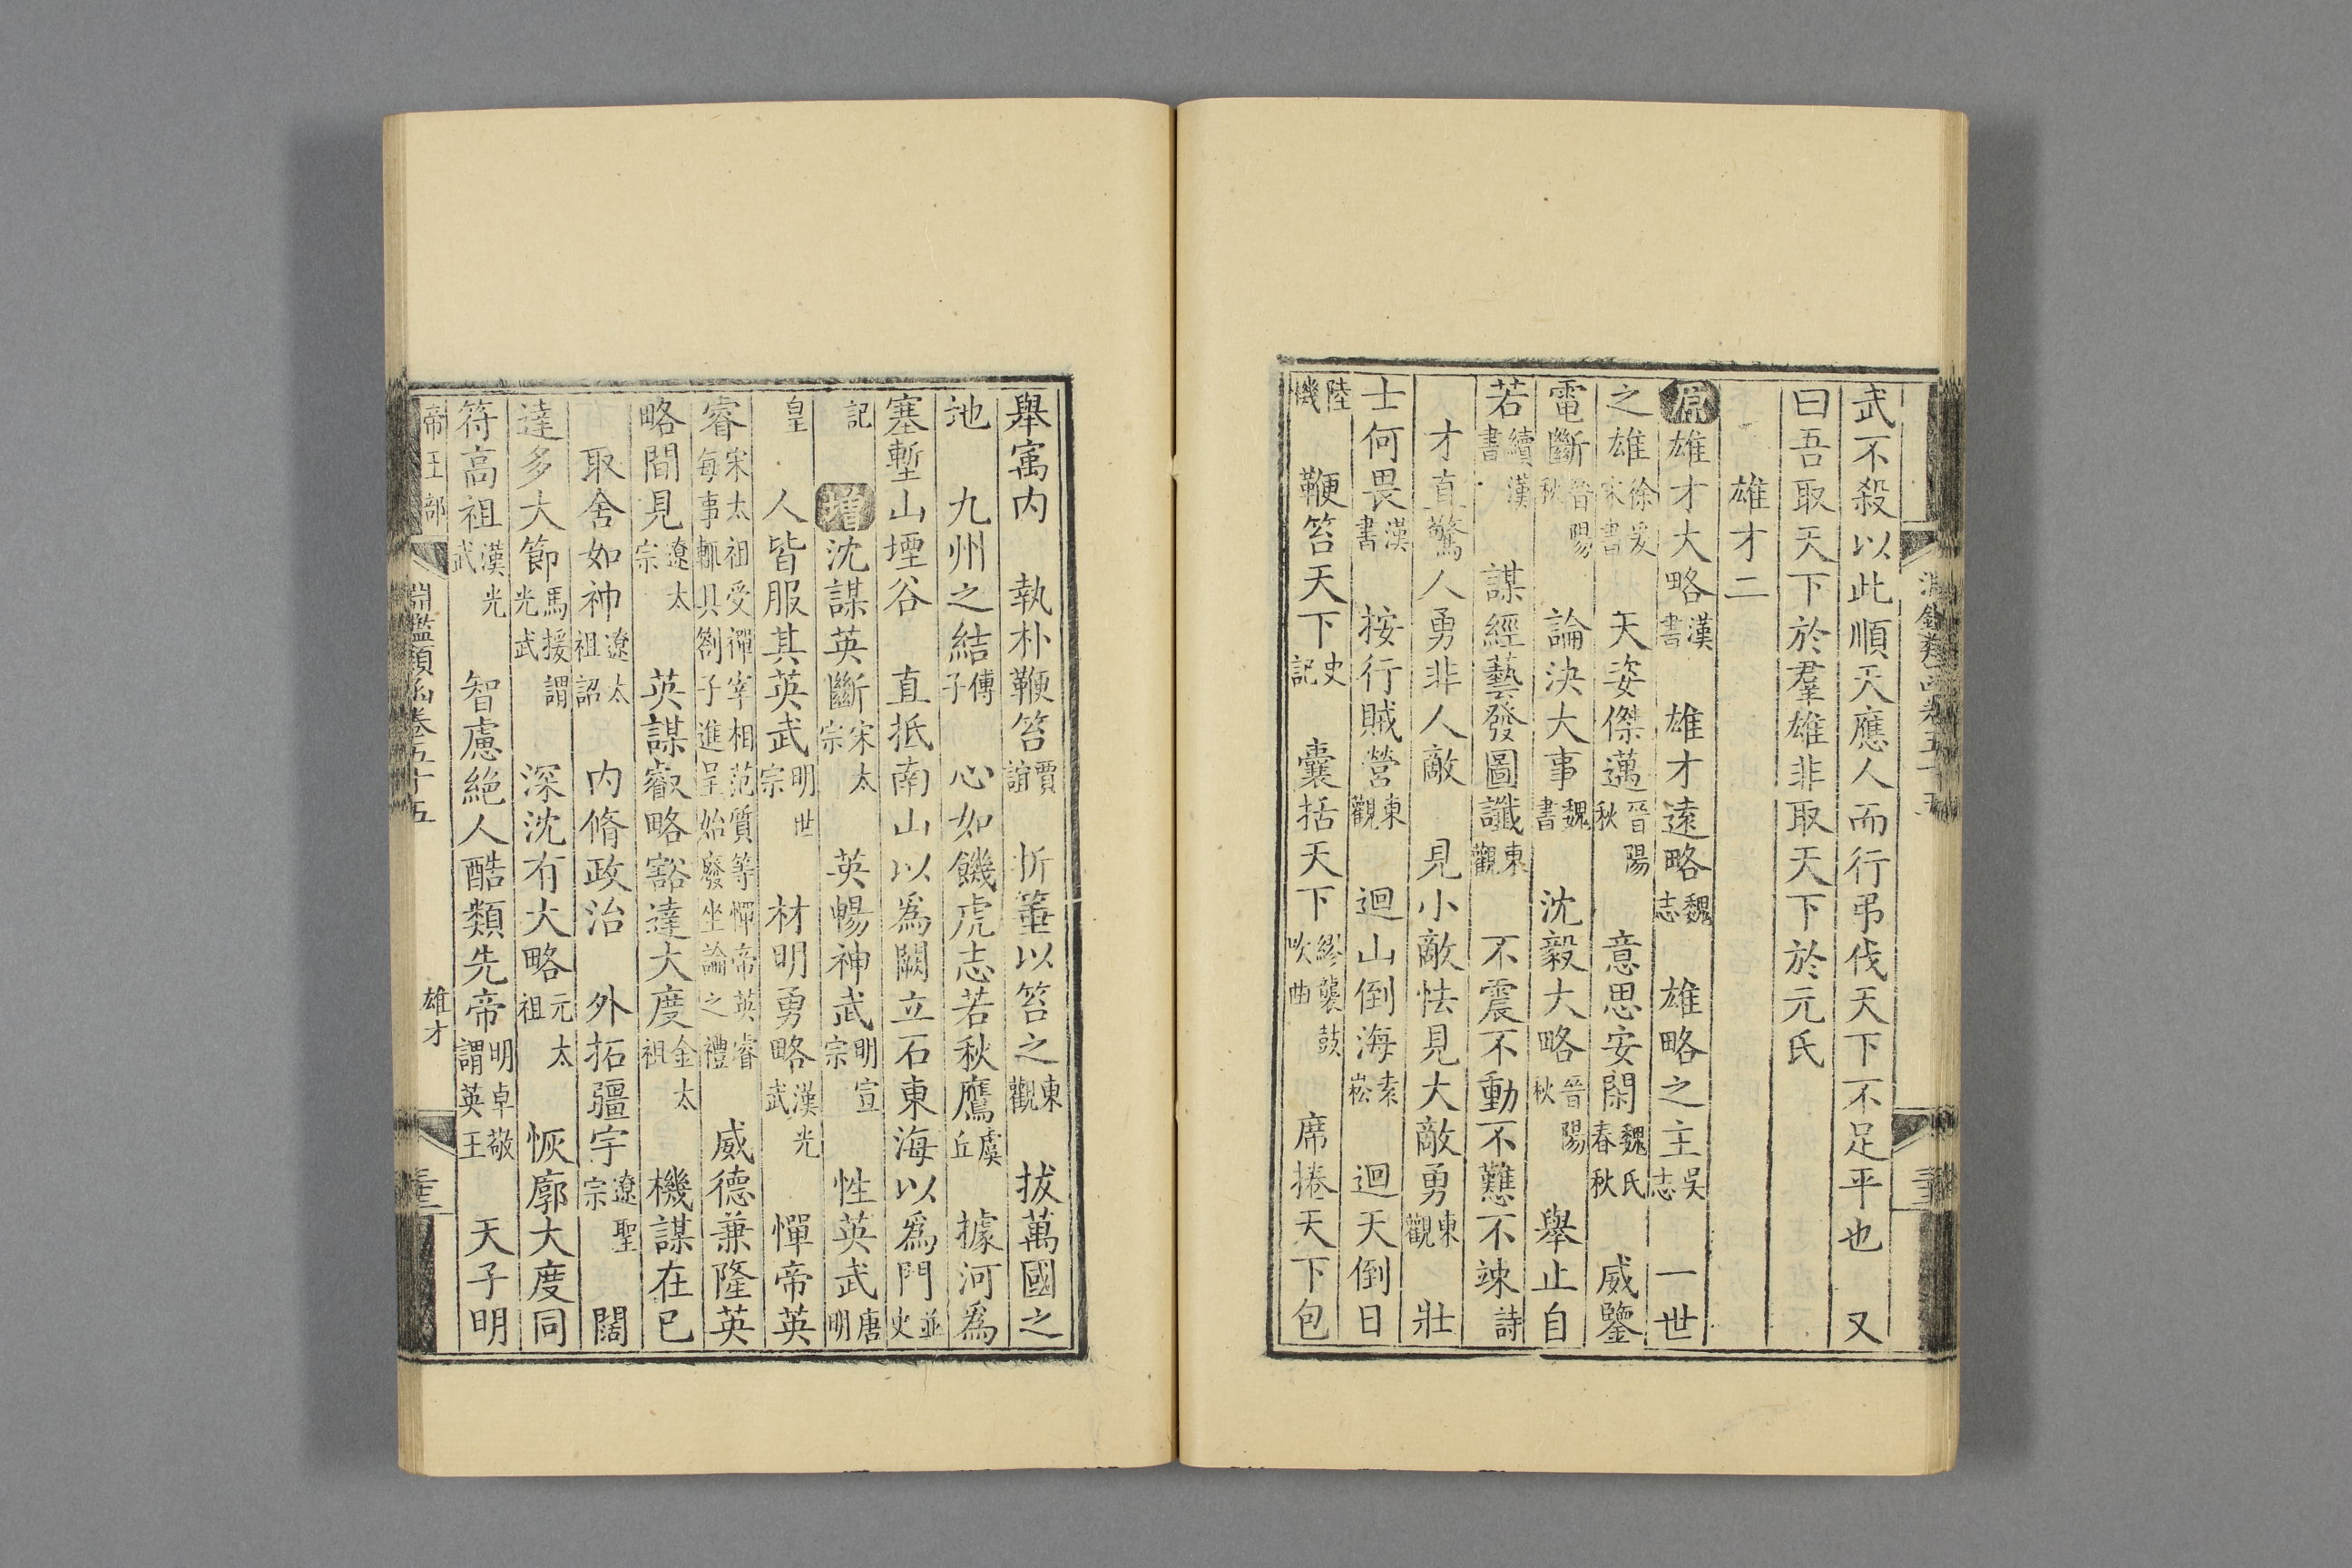 武不殺以此順天應人而行弔伐天下不足平也 又
曰吾取天下於羣雄非取天下於元氏
雄才二
原雄才大略漢書 雄才遠略魏志 雄略之主吳志 一世
之雄徐爰宋書 天姿傑邁晉陽秋 意思安閑魏氏春秋 威鑒
電斷晉陽秋 論決大事魏書 沈毅大略晉陽秋 舉止自
若續漢書 謀經藝發圖讖東觀 不震不動不戁不竦詩
才直驚人勇非人敵 見小敵怯見大敵勇東觀 壯
士何畏漢書 按行賊營東觀 迴山倒海索崧 迴天倒日
陸機 鞭笞天下史記 囊括天下繆襲鼓吹曲 席捲天下包
舉㝢内 執朴鞭笞賈誼 折箠以笞之東觀 拔萬國之
地 九州之結傅子 心如饑虎志若秋鷹虞丘 據河爲
塞塹山堙谷 直抵南山以爲闕立石東海以爲門並史
記 增沈謀英斷宋太宗 英暢神武明宣宗 性英武唐明
皇 人皆服其英武明世宗 材明勇略漢光武 憚帝英
睿宋太祖受禪宰相范質等憚帝英睿每事輒具劄子進呈始廢坐論之禮 威德兼隆英
略間見遼太宗 英謀叡略豁達大度金太祖 機謀在已
取舍如神遼太祖詔 内脩政治 外拓疆宇遼聖宗 闊
達多大節馬援謂光武 深沈有大略元太祖 恢廓大度同
符高祖漢光武 智慮絕人酷類先帝明卓敬謂英王 天子明
帝王部 淵鑑類函卷五十五 雄才